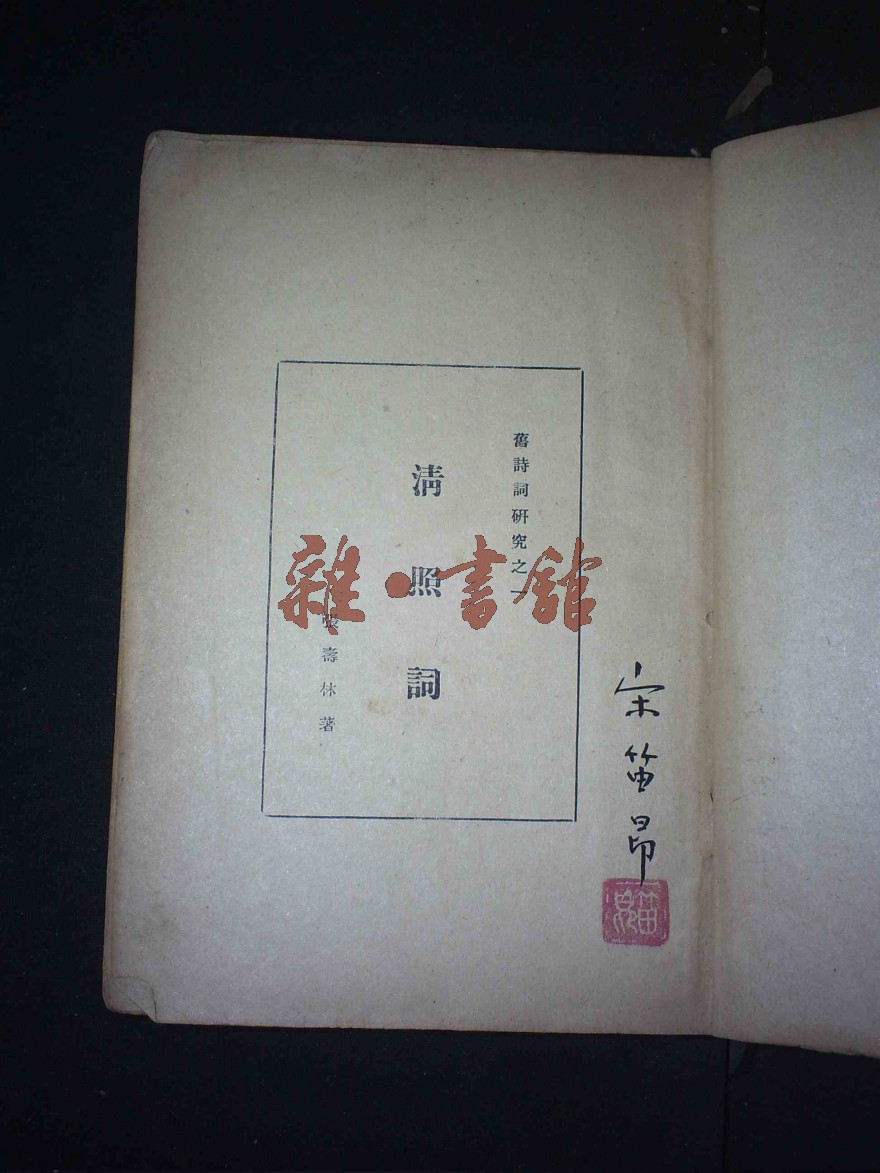 舊詩詞研究之一
清照詞
張壽林著
雜·書館
宋笛昂
笛昂